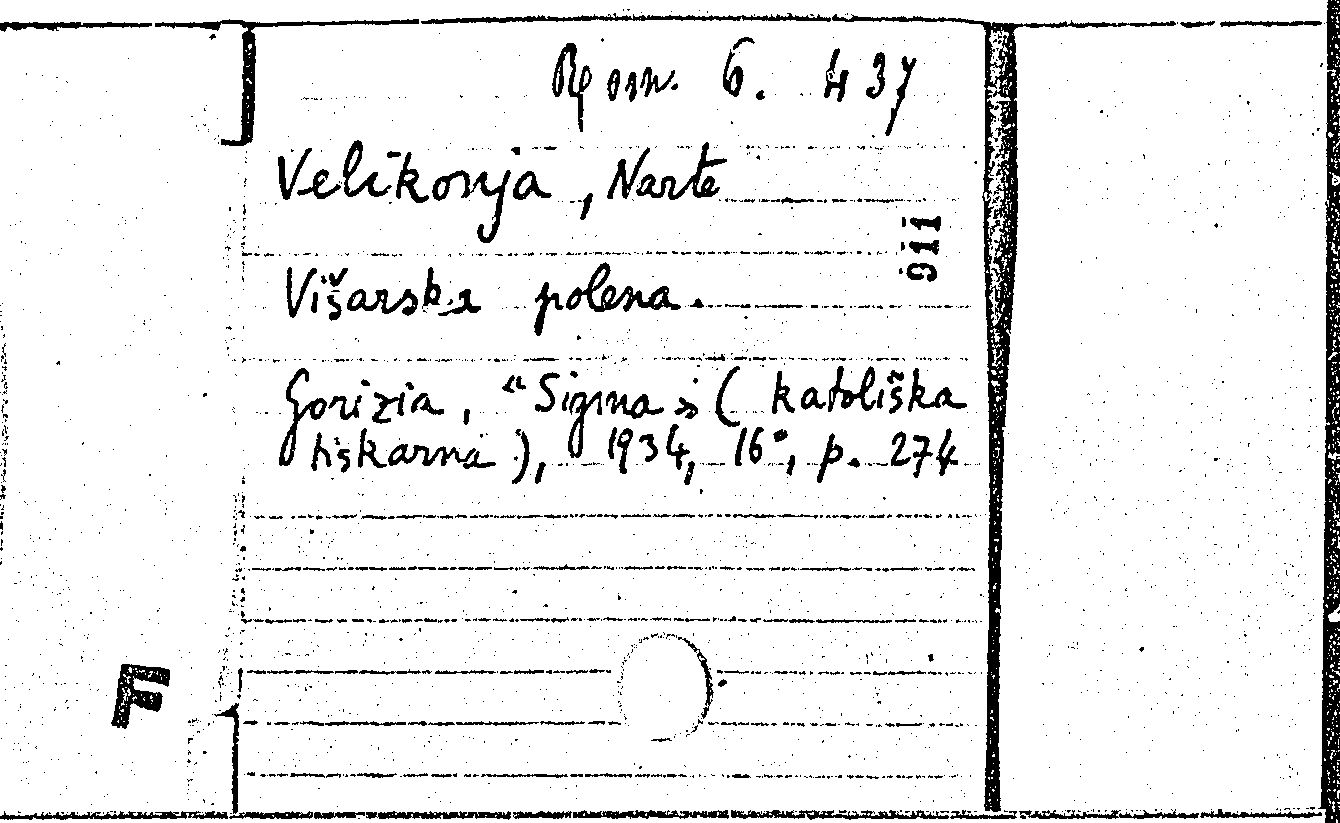 Rom. 6. 437
Velikonja, Narte
911
Višarska polena.
Gorizia, "Sigma" (katoliška
tiskarna), 1934, 16°, p. 274
F